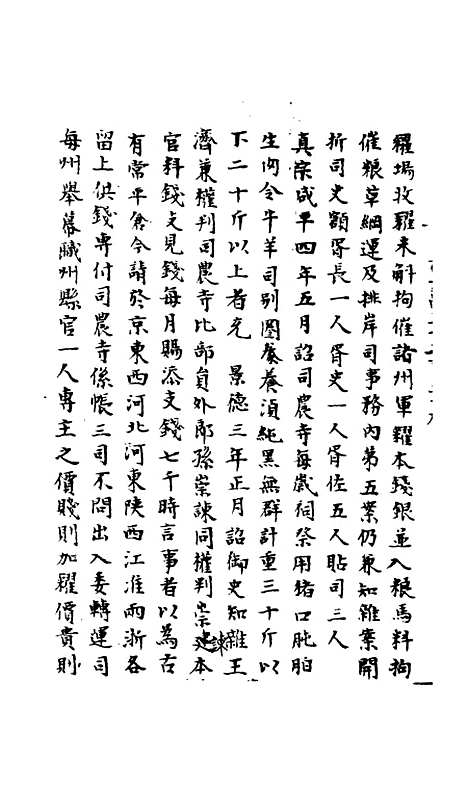 糴場收糴米斛拘催諸州軍糴本錢銀並入粮馬料拘
催粮草綱運及排岸司事務內第五案仍兼知雜案開
折司吏額胥長一人胥史一人胥佐五人貼司三人
真宗咸平四年五月詔司農寺每歲祠祭用猪口肫胉
生內令牛羊司別圈養養湏純黑無群計重三十斤以
下二十斤以上者充 景德三年正月詔御史知雜王
濟兼權判司農寺比部員外郎孫崇諫同權判崇諫本
官料錢支見錢每月賜添支錢七千時言事者以為古
有常平倉令請於京東西河北河東陝西江淮兩浙各
留上供錢専付司農寺係帳三司不問出入委轉運司
每州舉幕職州縣官一人専主之價賤則加糴價貴則